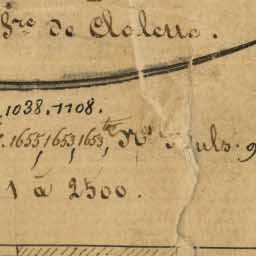 bre de Clolette.
1038. 1108.
1655, 1653, 1653 ter, Nos
1 à 2500.